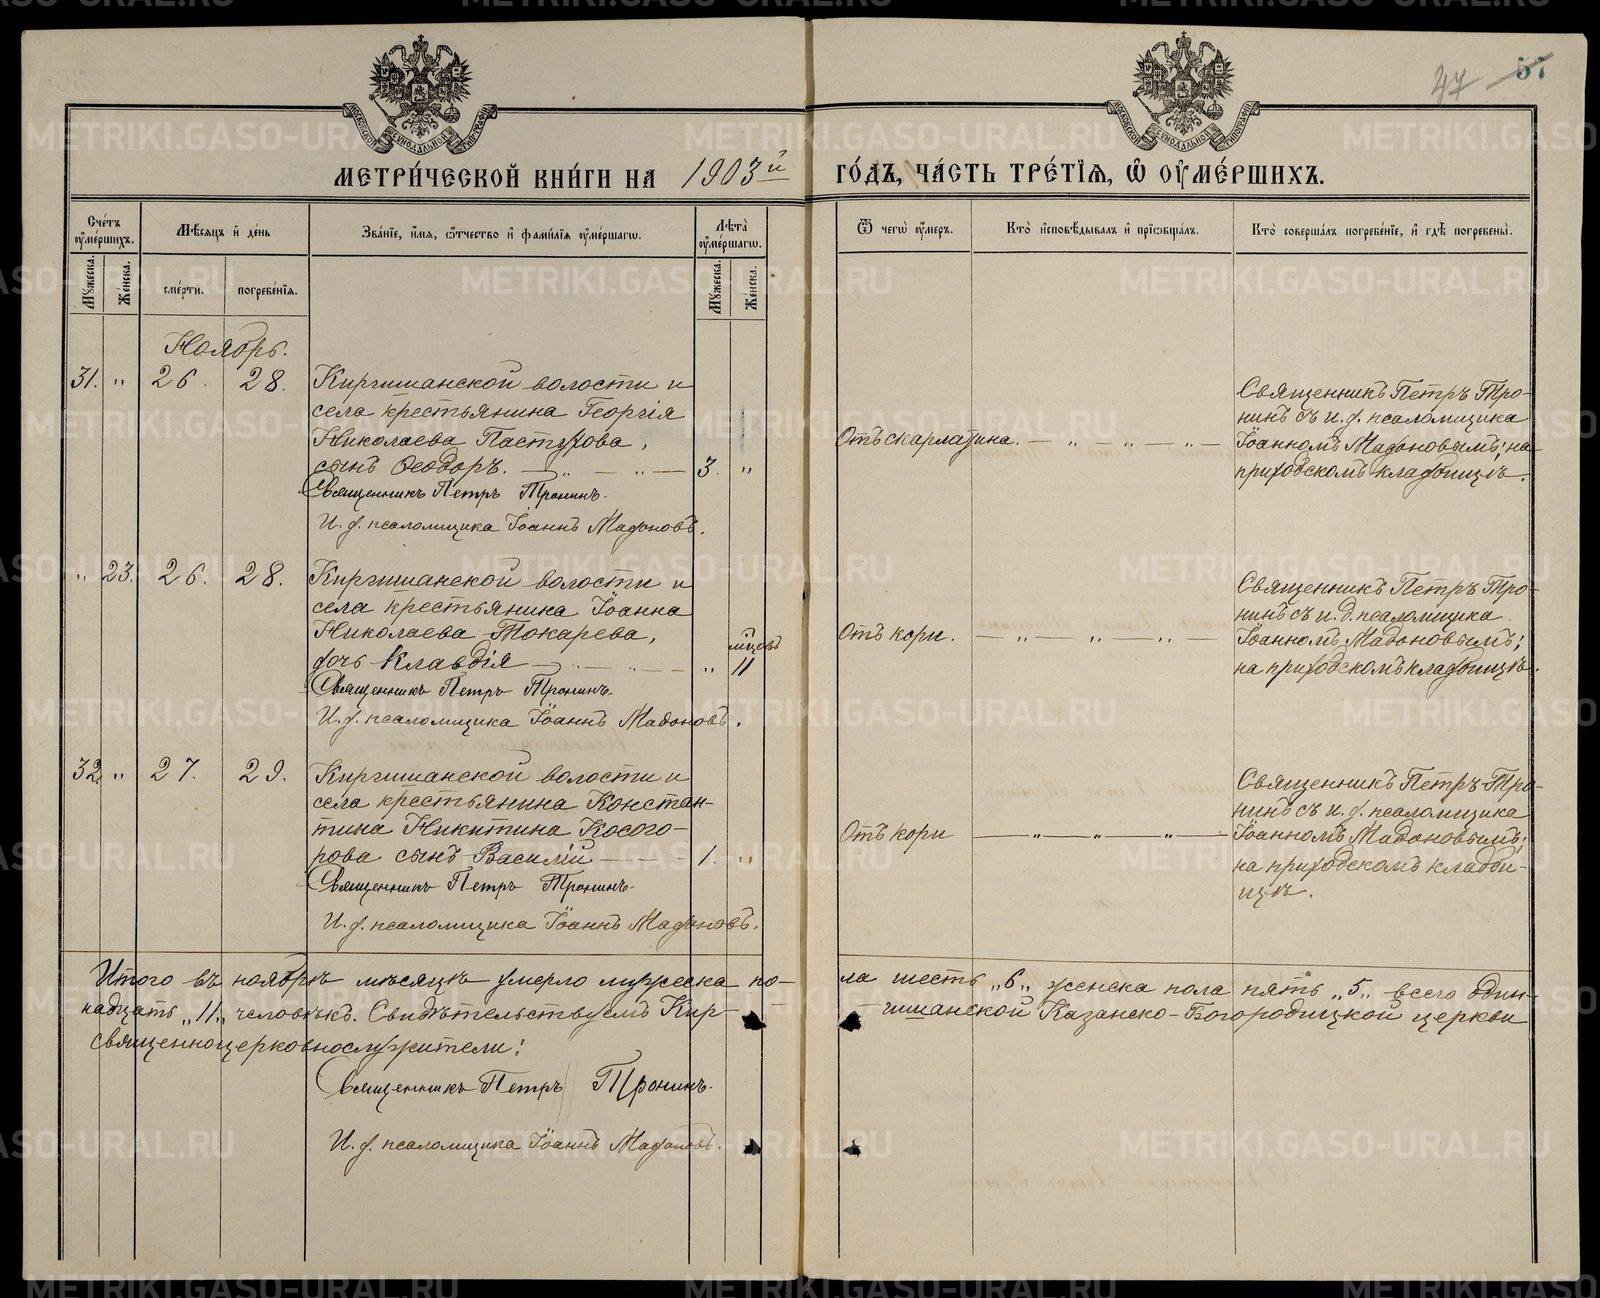 47 57
МЕТРИ́ЧЕСКОЙ КНИ́ГИ НА 1903й ГО́ДЪ, ЧА́СТЬ ТРЕ́ТІЯ, Ѡ ОУ҆МЕ́РШИХЪ.
Сче́тъ оу҆ме́ршихъ.
Му́жеска.
Же́нска.
Мѣ́сяцъ и҆ де́нь
сме́рти.
погребе́нїя.
Зва́нїе, и҆́мя, ѻ҆́тчество и҆ фами́лїя оу҆ме́ршагѡ.
Лѣ́та оу҆ме́ршагѡ.
Му́жеска.
Же́нска.
Ѿ чегѡ̀ оу҆́меръ.
Кто̀ и҆сповѣ́дывалъ и҆ прїѡбща́лъ.
Кто̀ соверша́лъ погребе́нїе, и҆ гдѣ̀ погребены̀.
Ноябрь.
31. " 26. 28.
Киргишанской волости и
села крестьянина Георгія
Николаева Пастухова,
сынъ Ѳеодоръ. 3. "
Священникъ Петръ Тронинъ.
И. д. псаломщика Іоаннъ Мадоновъ.
Отъ скарлатина.
Священникъ Петръ Тро-
нинъ съ и. д. псаломщика
Іоанномъ Мадоновымъ; на
приходскомъ кладбищѣ.
" 23. 26. 28.
Киргишанской волости и
села крестьянина Іоанна
Николаева Токарева,
дочь Клавдія " мѣсяцовъ 11
Священникъ Петръ Тронинъ.
И. д. псаломщика Іоаннъ Мадоновъ.
Отъ кори.
Священникъ Петръ Тро-
нинъ съ и. д. псаломщика
Іоанномъ Мадоновымъ;
на приходскомъ кладбищѣ.
32. " 27. 29.
Киргишанской волости и
села крестьянина Констан-
тина Никитина Косого-
рова сынъ Василій 1. "
Священникъ Петръ Тронинъ.
И. д. псаломщика Іоаннъ Мадоновъ.
Отъ кори
Священникъ Петръ Тро-
нинъ съ и. д. псаломщика
Іоанномъ Мадоновымъ;
на приходскомъ кладби-
щѣ.
Итого въ ноябрѣ мѣсяцѣ умерло мужеска по-ла шесть "6" женска пола пять "5" всего один-
надцать "11" человѣкъ. Свидѣтельствуемъ Кир-гишанской Казанско-Богородицкой церкви
священноцерковнослужители:
Священникъ Петръ Тронинъ.
И. д. псаломщика Іоаннъ Мадоновъ.
METRIKI.GASO-URAL.RU